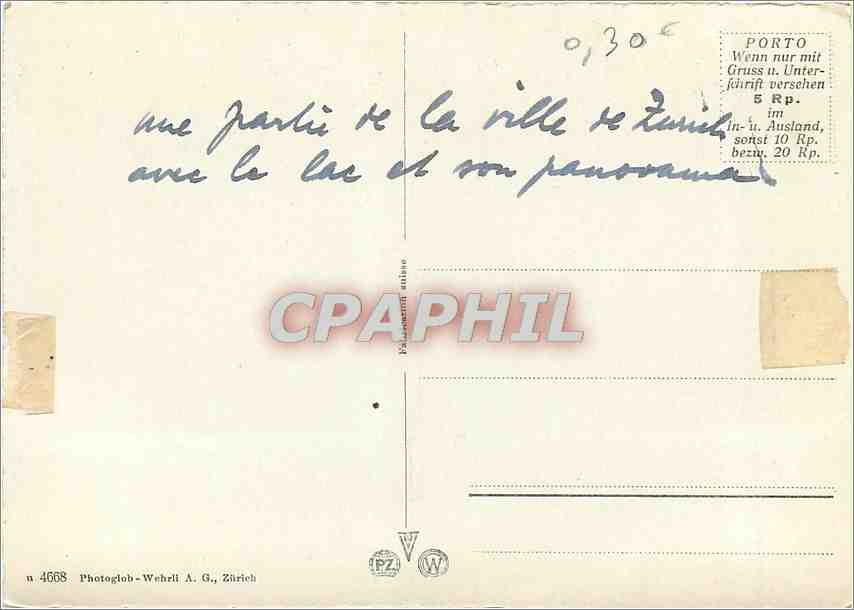 0,30 €
PORTO
Wenn nur mit
Gruss u. Unter-
schrift versehen
5 Rp.
im
In- u. Ausland,
sonst 10 Rp.
bezw. 20 Rp.
une partie de la ville de Zurich
avec le lac et son panorama
Fabrication suisse
CPAPHIL
PZ
W
u 4668 Photoglob-Wehrli A. G., Zürich